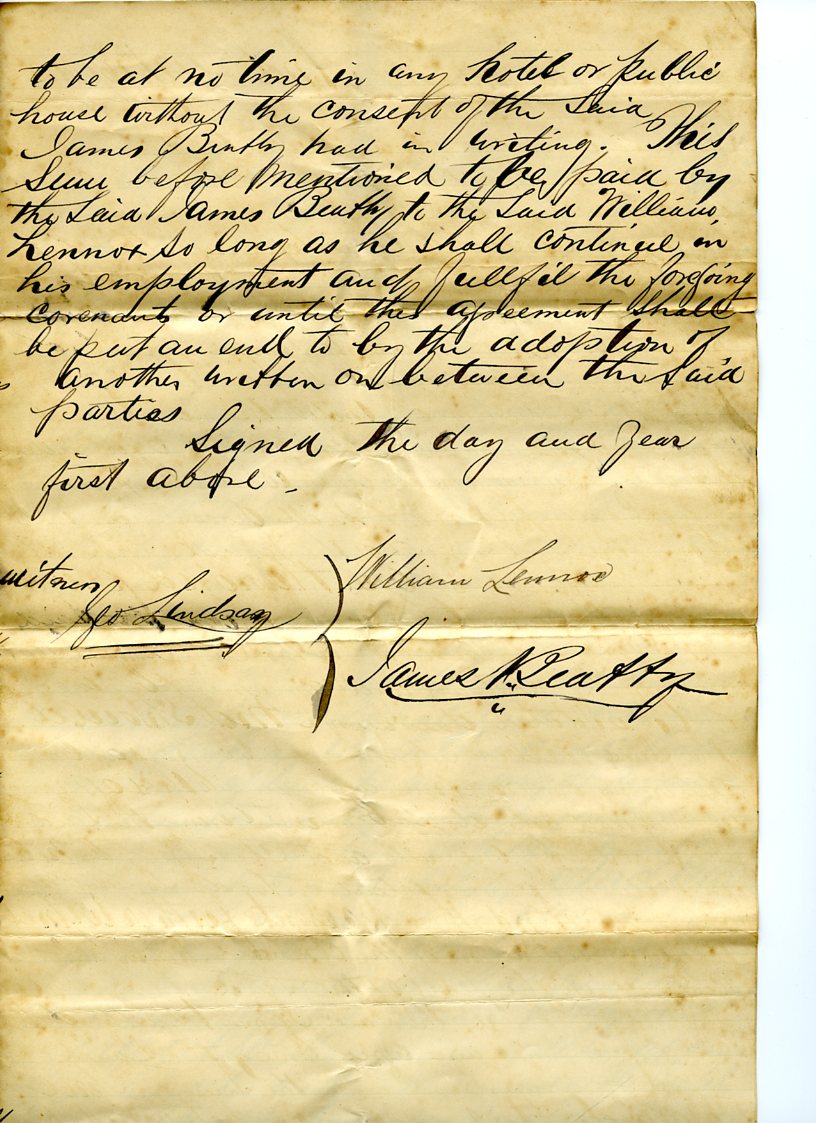 to be at no time in any hotel or public
house without the consent of the said
James Beatty had in writing. This
sum before mentioned to be paid by
the said James Beatty to the said William
Lennox so long as he shall continue in
his employment and fullfil the forgoing
covenants or until this agreement shall
be put an end to by the adoption of
another written on between the said
parties
Signed the day and year
first above _
witness
Geo Lindsay
William Lennox
James N. Beatty